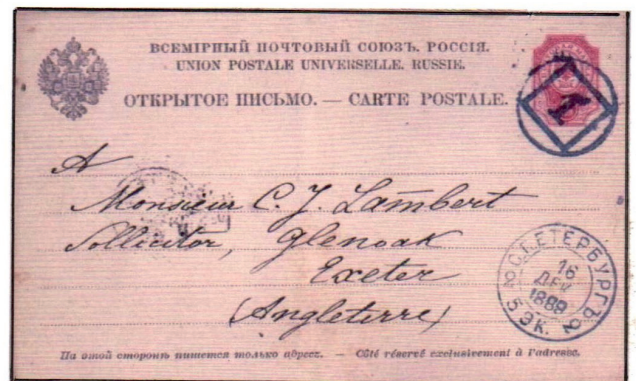 ВСЕМІРНЫЙ ПОЧТОВЫЙ СОЮЗЪ. РОССІЯ.
UNION POSTALE UNIVERSELLE. RUSSIE.
ОТКРЫТОЕ ПИСЬМО. — CARTE POSTALE.
A
Monsieur C. J. Lambert
Sollicitor, Glenoak
Exeter
(Angleterre)
С.ПЕТЕРБУРГЪ
16
ДЕК
1889
5 ЭК. 2
На этой сторонѣ пишется только адресъ. — Côté réservé exclusivement à l'adresse.